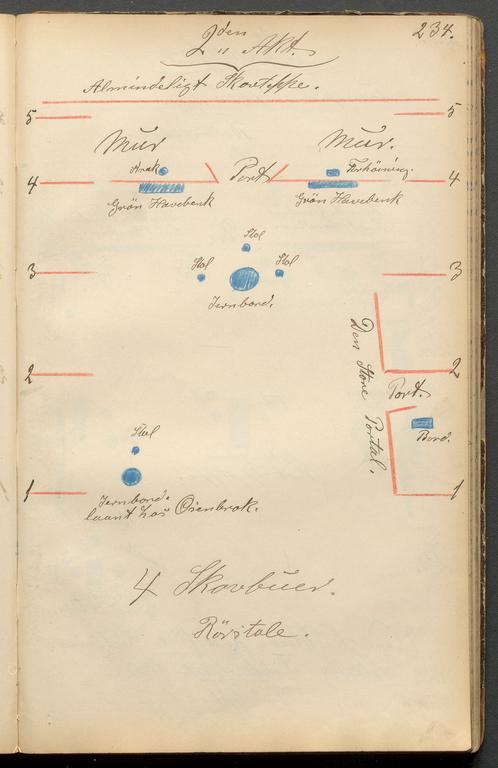 234.
2den Akt.
Almindeligt Skovteppe.
5 5
Mur Mur.
Krak Port Forhöining.
4 4
Grön Havebenk Grön Havebenk
Stol
Stol Stol
3 3
Jernbord.
Den Store Portal.
2 2
Port.
Stol Bord.
1 1
Jernbord.
laant hos Osenbrok.
4 Skovbuer.
Rörstole.